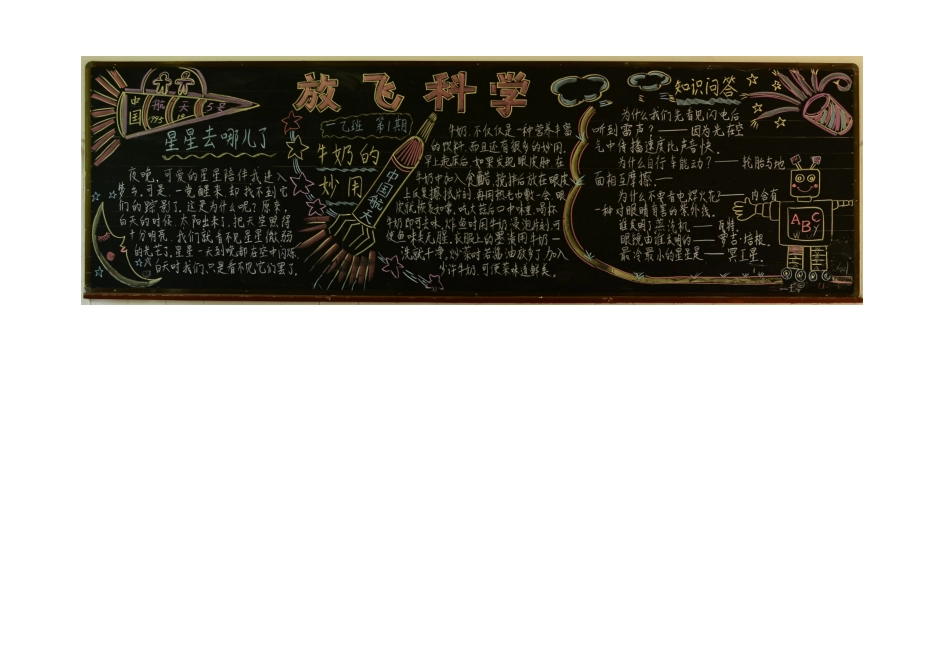 放飞科学
中国
航天
5号
星星去哪儿了
夜晚，可爱的星星陪伴我进入
梦乡。可是，一觉醒来，却找不到它
们的踪影了。这是为什么呢？原来，
白天的时候，太阳出来了，把天空照得
十分明亮，我们就看不见星星微弱
的光芒了。星星一天到晚都在空中闪烁，
白天时我们只是看不见它们罢了。
一乙班 第1期
牛奶的
炒用
中国航天
牛奶，不仅仅是一种营养丰富
的饮料，而且还有很多的妙用。
早上起床后，如果发现眼皮肿，在
牛奶中加入食醋，搅拌后放在眼皮
上反复擦拭片刻，再用热毛巾敷一会，眼
皮就恢复如常。吃大蒜后口中味重，喝杯
牛奶即可去味。炸鱼时用牛奶浸泡片刻，可
使鱼味美无腥。衣服上的墨渍用牛奶一
洗就干净。炒菜时若酱油放多了，加入
少许牛奶，可使菜味道鲜美。
知识问答
为什么我们先看见闪电后
听到雷声？——因为光在空
气中传播速度比声音快。
为什么自行车能动？——轮胎与地
面相互摩擦。
为什么不要看电焊火花？——内含有
一种对眼睛有害的紫外线。
谁发明了蒸汽机——瓦特。
眼镜由谁发明的——罗吉·培根。
最冷最小的星星是——冥王星。
ABC